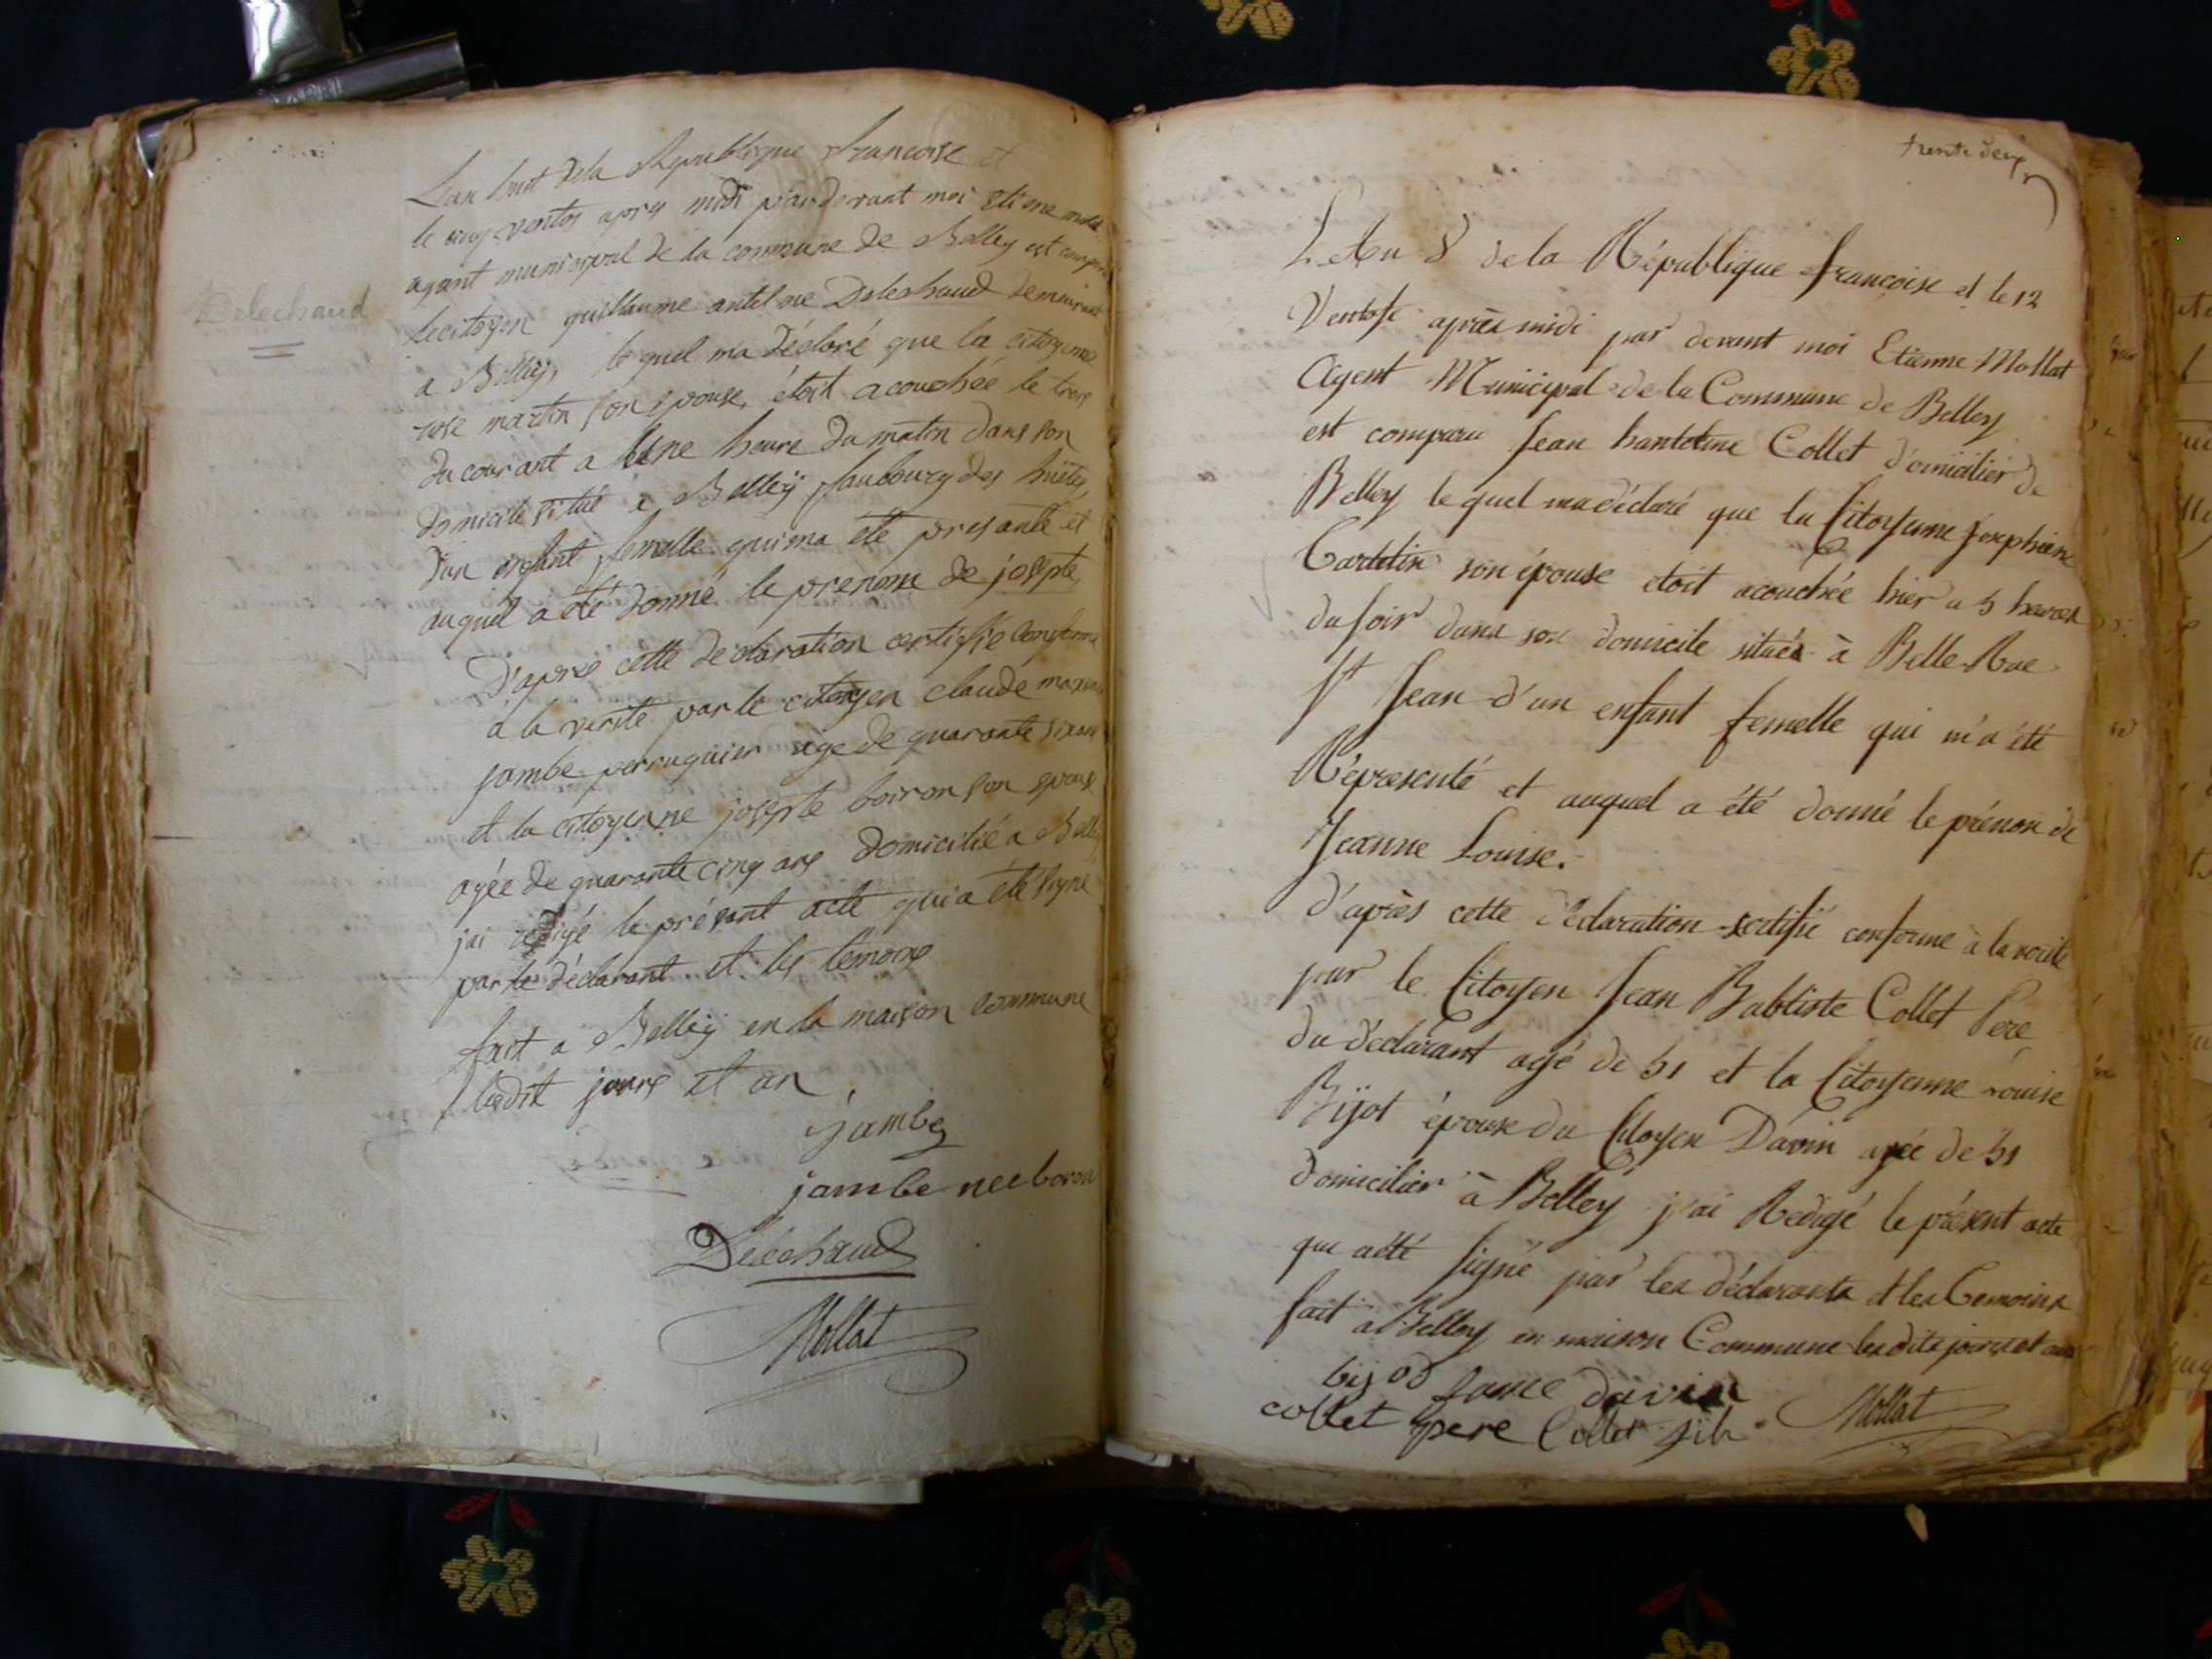 Delechaud
L'an huit de la Republique francoise et
le cinq ventos apres midi par devant moi Etiene mollat
agent municipal de la commune de Belley est comparu
le citoyen guillaume antelme Delechaud demeurant
a Belley, le quel ma déclaré que la citoyenne
rose martin son epouse, étoit acouchée le trois
du courant a Une heure du matin dans son
domicile situé a Belley faubourg des
d'un enfant femelle qui ma été presanté et
auquel a été donné le prenom de josepte,
D'apres cette declaration certifie conforme
a la verité par le citoyen claude
jambe perruquier age de quarante six ans
et la citoyenne josepte boiron son epouse
agée de quarante cinq ans domicilié a Belley
jai redigé le présant acte qui a été signé
par le déclarant et les temoins
fait a Belley en la maison commune
lesdit jours et an
jambe
jambe nee boron
Deléchaud
Mollat
trente deux
L'An 8 de la République francoise et le 12
Ventose après midi par devant moi Etienne Mollat
Agent Municipal de la Commune de Belley
est comparu Jean hantelme Collet domicilier de
Belley le quel ma déclaré que la Citoyenne Josephine
son épouse etoit acouchée hier a 5 heures
du soir dans son domicile située à Belle Rue
St Jean d'un enfant femelle qui m'a été
Répresenté et auquel a été donné le prénom de
Jeanne Louise.
d'après cette déclaration certifié conforme à la verité
par le Citoyen Jean Babtiste Collet Pere
du déclarant agé de 51 et la Citoyenne Louise
Bijot épouse du Citoyen Davin agée de 51
domicilier à Belley j'ai Redigé le présent acte
qui a été signé par les déclarants et les temoins
fait à Belley en maison Commune lesdits jours et an
bijod fame davin
collet pere Collet fils Mollat